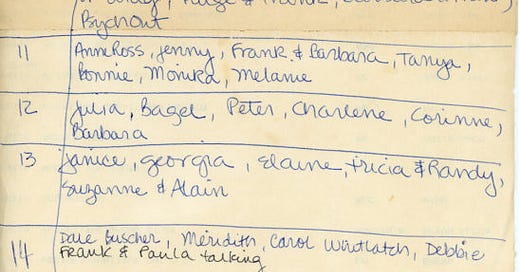 PsychOut
11 AnneRoss, Jenny, Frank & Barbara, Tanya,
Bonnie, Monika, Melanie
12 Julia, Bagel, Peter, Charlene, Corinne,
Barbara
13 Janice, Georgia, Elaine, Tricia & Randy,
Suzanne & Alain
14 Dale Buscher, Meridith, Carol Whitlatch, Debbie
Frank & Paula talking